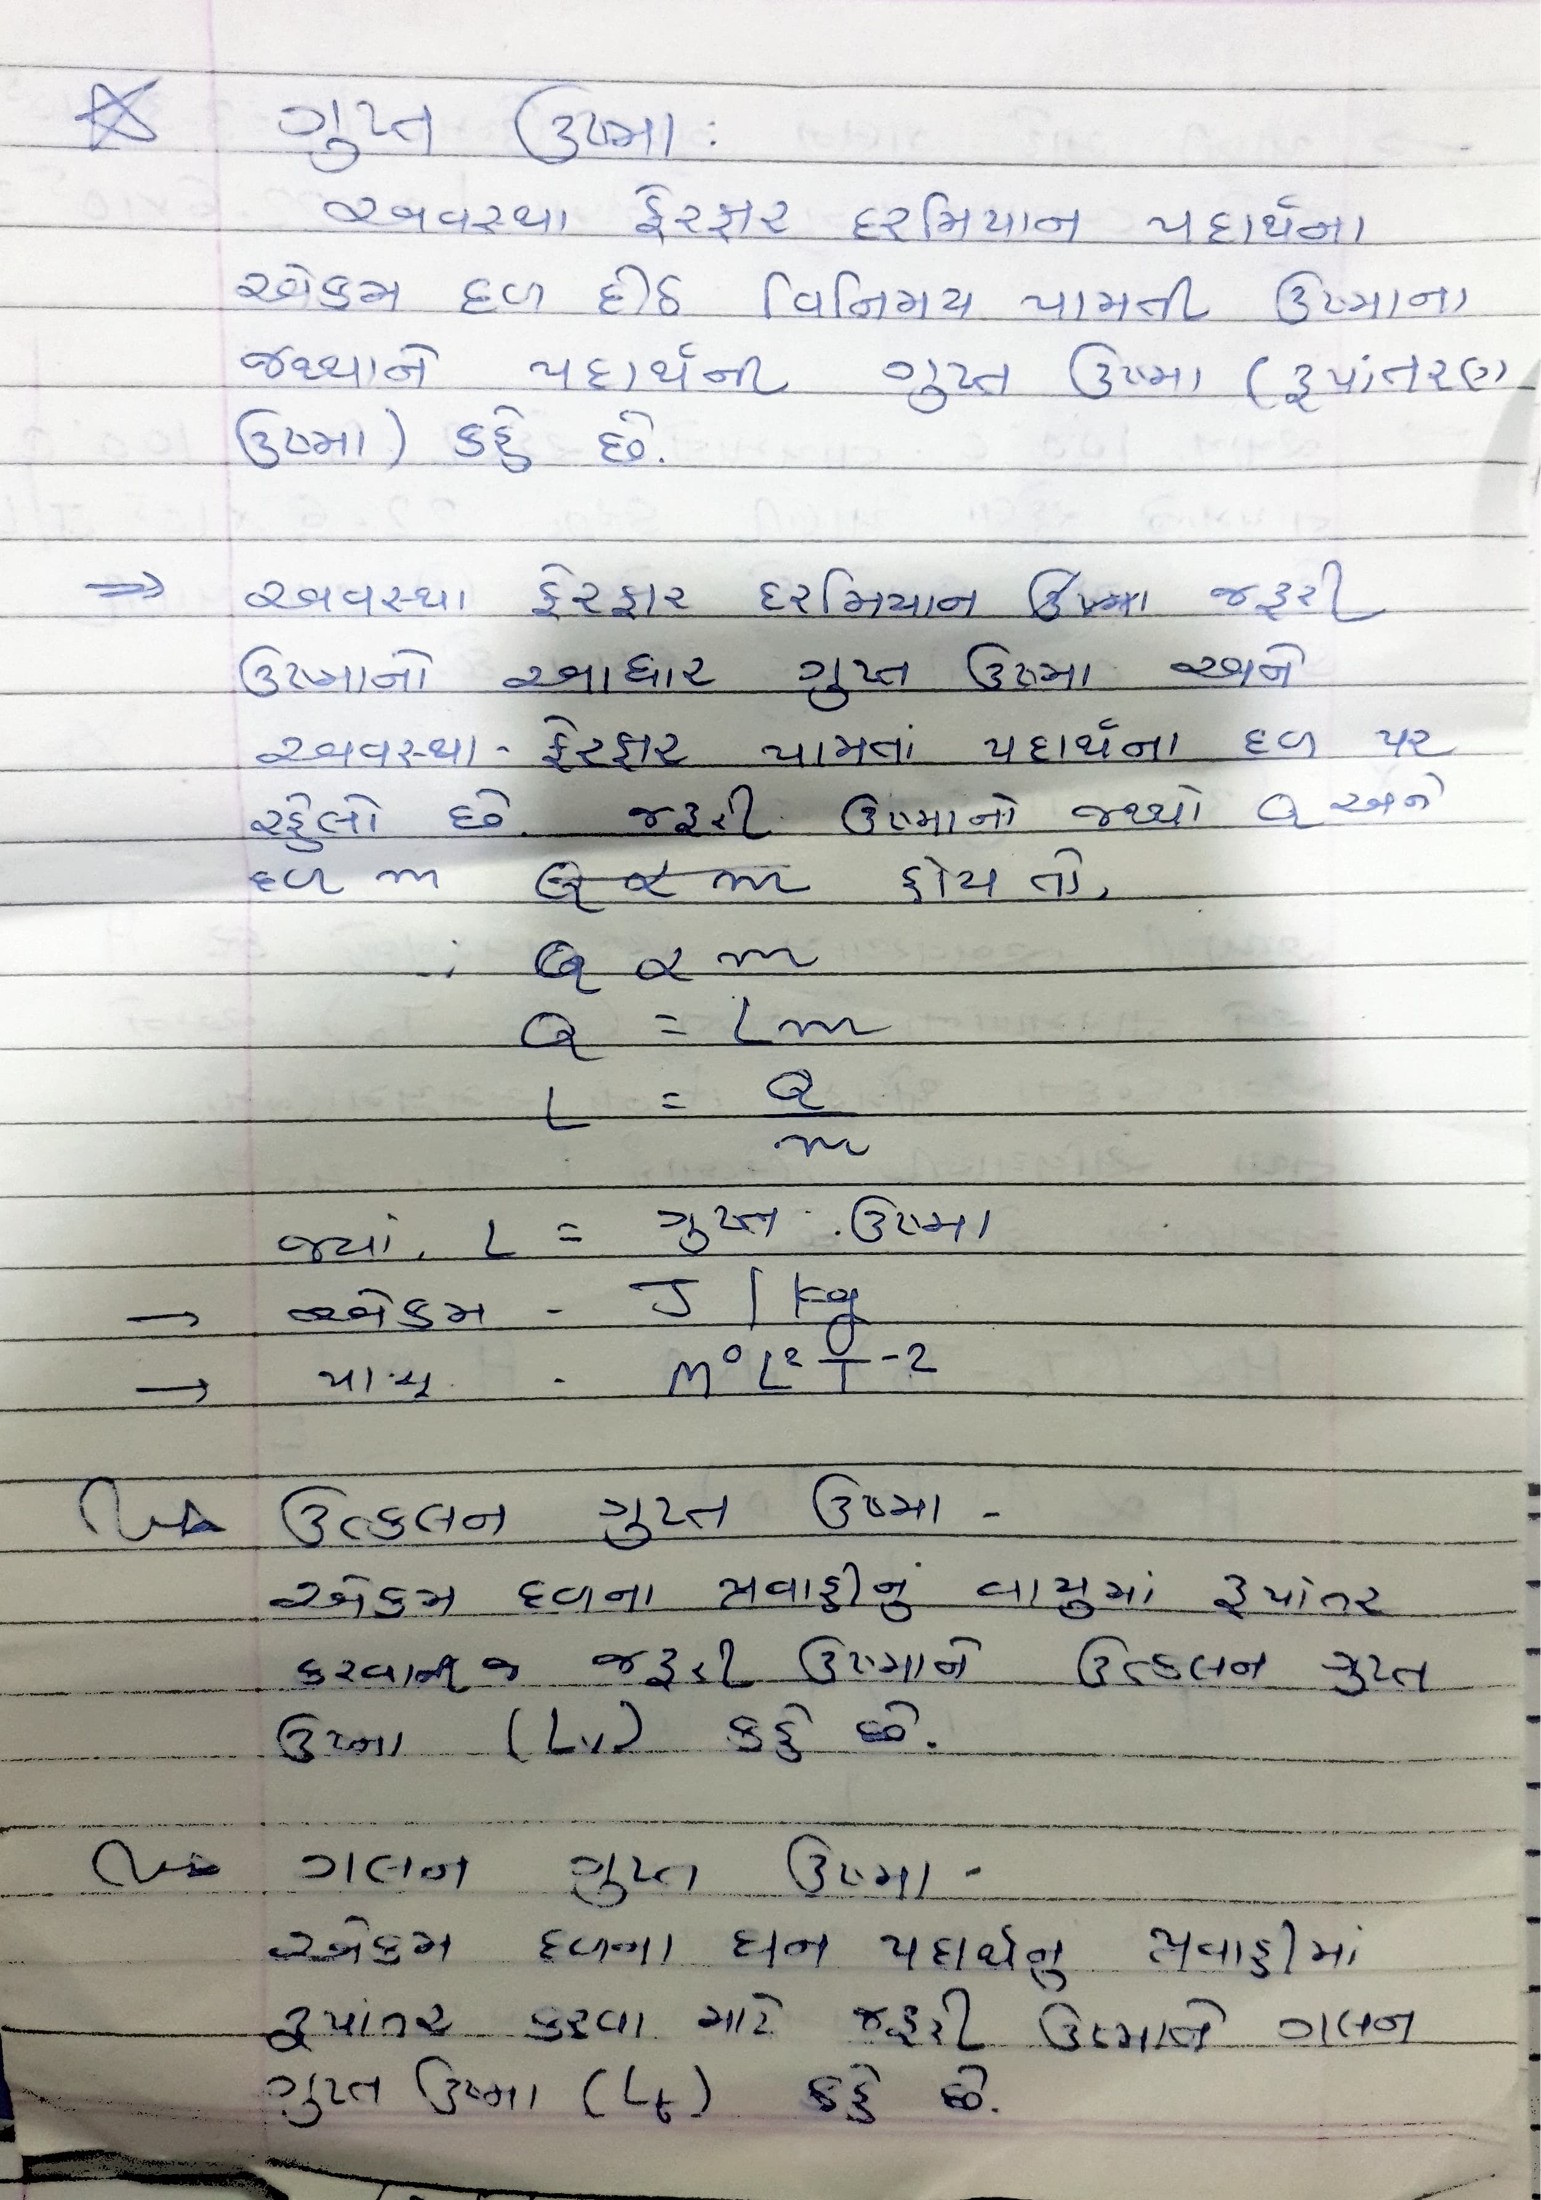 ગુપ્ત ઉષ્મા :
અવસ્થા ફેરફાર દરમિયાન પદાર્થના
એકમ દળ દીઠ વિનિમય પામતી ઉષ્માના
જથ્થાને પદાર્થની ગુપ્ત ઉષ્મા (રૂપાંતરણ
ઉષ્મા) કહે છે.
⇒ અવસ્થા ફેરફાર દરમિયાન જરૂરી
ઉષ્માનો આધાર ગુપ્ત ઉષ્મા અને
અવસ્થા - ફેરફાર પામતાં પદાર્થના દળ પર
રહેલો છે. જરૂરી ઉષ્માનો જથ્થો Q અને
દળ m Q α m હોય તો,
∴ Q α m
Q = Lm
L = Q
m
જ્યાં, L = ગુપ્ત ઉષ્મા
→ એકમ - J / kg
→ પા.સૂ. - M⁰L²T⁻²
ઉત્કલન ગુપ્ત ઉષ્મા -
એકમ દળના પ્રવાહીનું વાયુમાં રૂપાંતર
જરૂરી ઉષ્માને ઉત્કલન ગુપ્ત
ઉષ્મા (Lv) કહે છે.
ગલન ગુપ્ત ઉષ્મા -
એકમ દળના ઘન પદાર્થનુ પ્રવાહીમાં
રૂપાંતર કરવા માટે જરૂરી ઉષ્માને ગલન
ગુપ્ત ઉષ્મા (Lf) કહે છે.